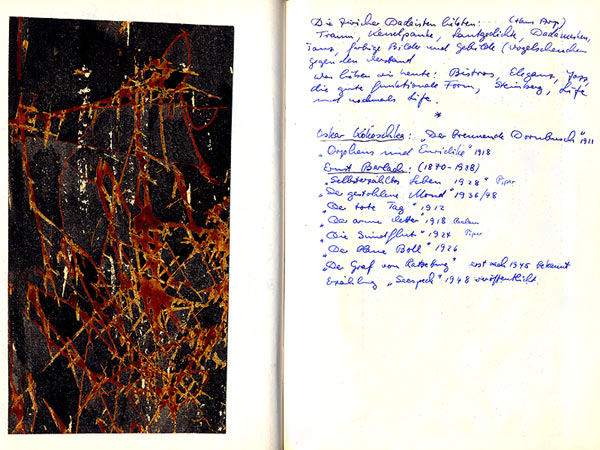 Die Züricher Dadaisten liebten: (Hans Arp)
Traum, Lautgedichte, Dadamasken,
Tanz, farbige Bilde und Gebilde (Vogelscheuchen
gegen den Verstand
Was lieben wir heute: Bistros, Eleganz, Jazz,
die gute funktionale Form, Steinberg, Life
und nochmals Life.
*
Oskar Kokoschka: "Der brennende Dornbusch" 1911
"Orpheus und Euridike" 1918
Ernst Barlach: (1870-1938)
"Selbsterzähltes Leben 1928" Piper
"Der gestohlene Mond" 1936/48
"Der tote Tag" 1912
"Der arme Vetter" 1918
"Die Sündflut" 1924 Piper
"Der blaue Boll" 1926
"Der Graf von Ratzeburg" erst nach 1945 bekannt
Erzählung "Seespeck" 1948 veröffentlicht.